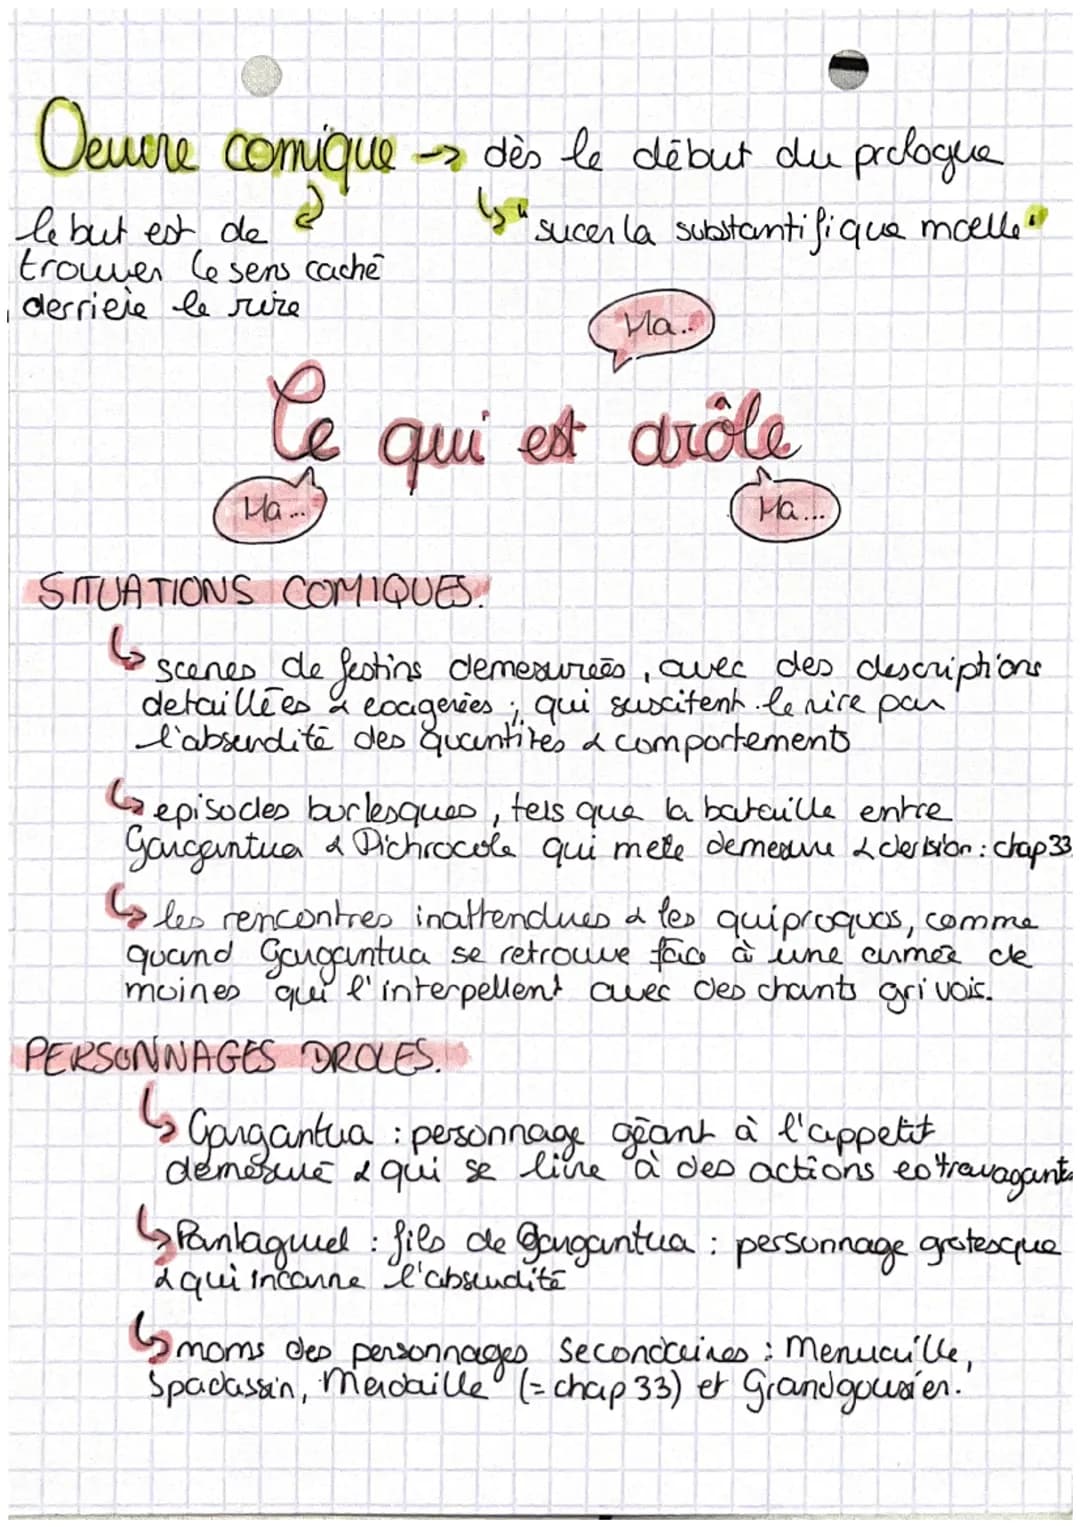 Oeuvre comique -> dès le début du prologue
↳ "sucer la substantifique moelle"
le but est de
trouver le sens caché
derrière le rire
Ha..
Ce qui est drôle
Ha...
Ha...
SITUATIONS COMIQUES.
↳ scenes de festins demesurées, avec des descriptions
detaillées & exagerées ; qui suscitent le rire par
l'absurdité des quantites & comportements
↳ episodes burlesques, tels que la bataille entre
Gargantua & Pichrocole qui mele demesure & derision : chap 33
↳ les rencontres inattendues & les quiproquos, comme
quand Gargantua se retrouve face à une armée de
moines qui l'interpellent avec des chants grivois.
PERSONNAGES DROLES.
↳ Gargantua : personnage géant à l'appetit
demesuré & qui se livre à des actions extravagants
↳ Pantagruel : fils de Gargantua : personnage grotesque
& qui incarne l'absurdité
↳ noms des personnages secondaires : Menuaille,
Spadassin, Merdaille (= chap 33) et Grandgousier.